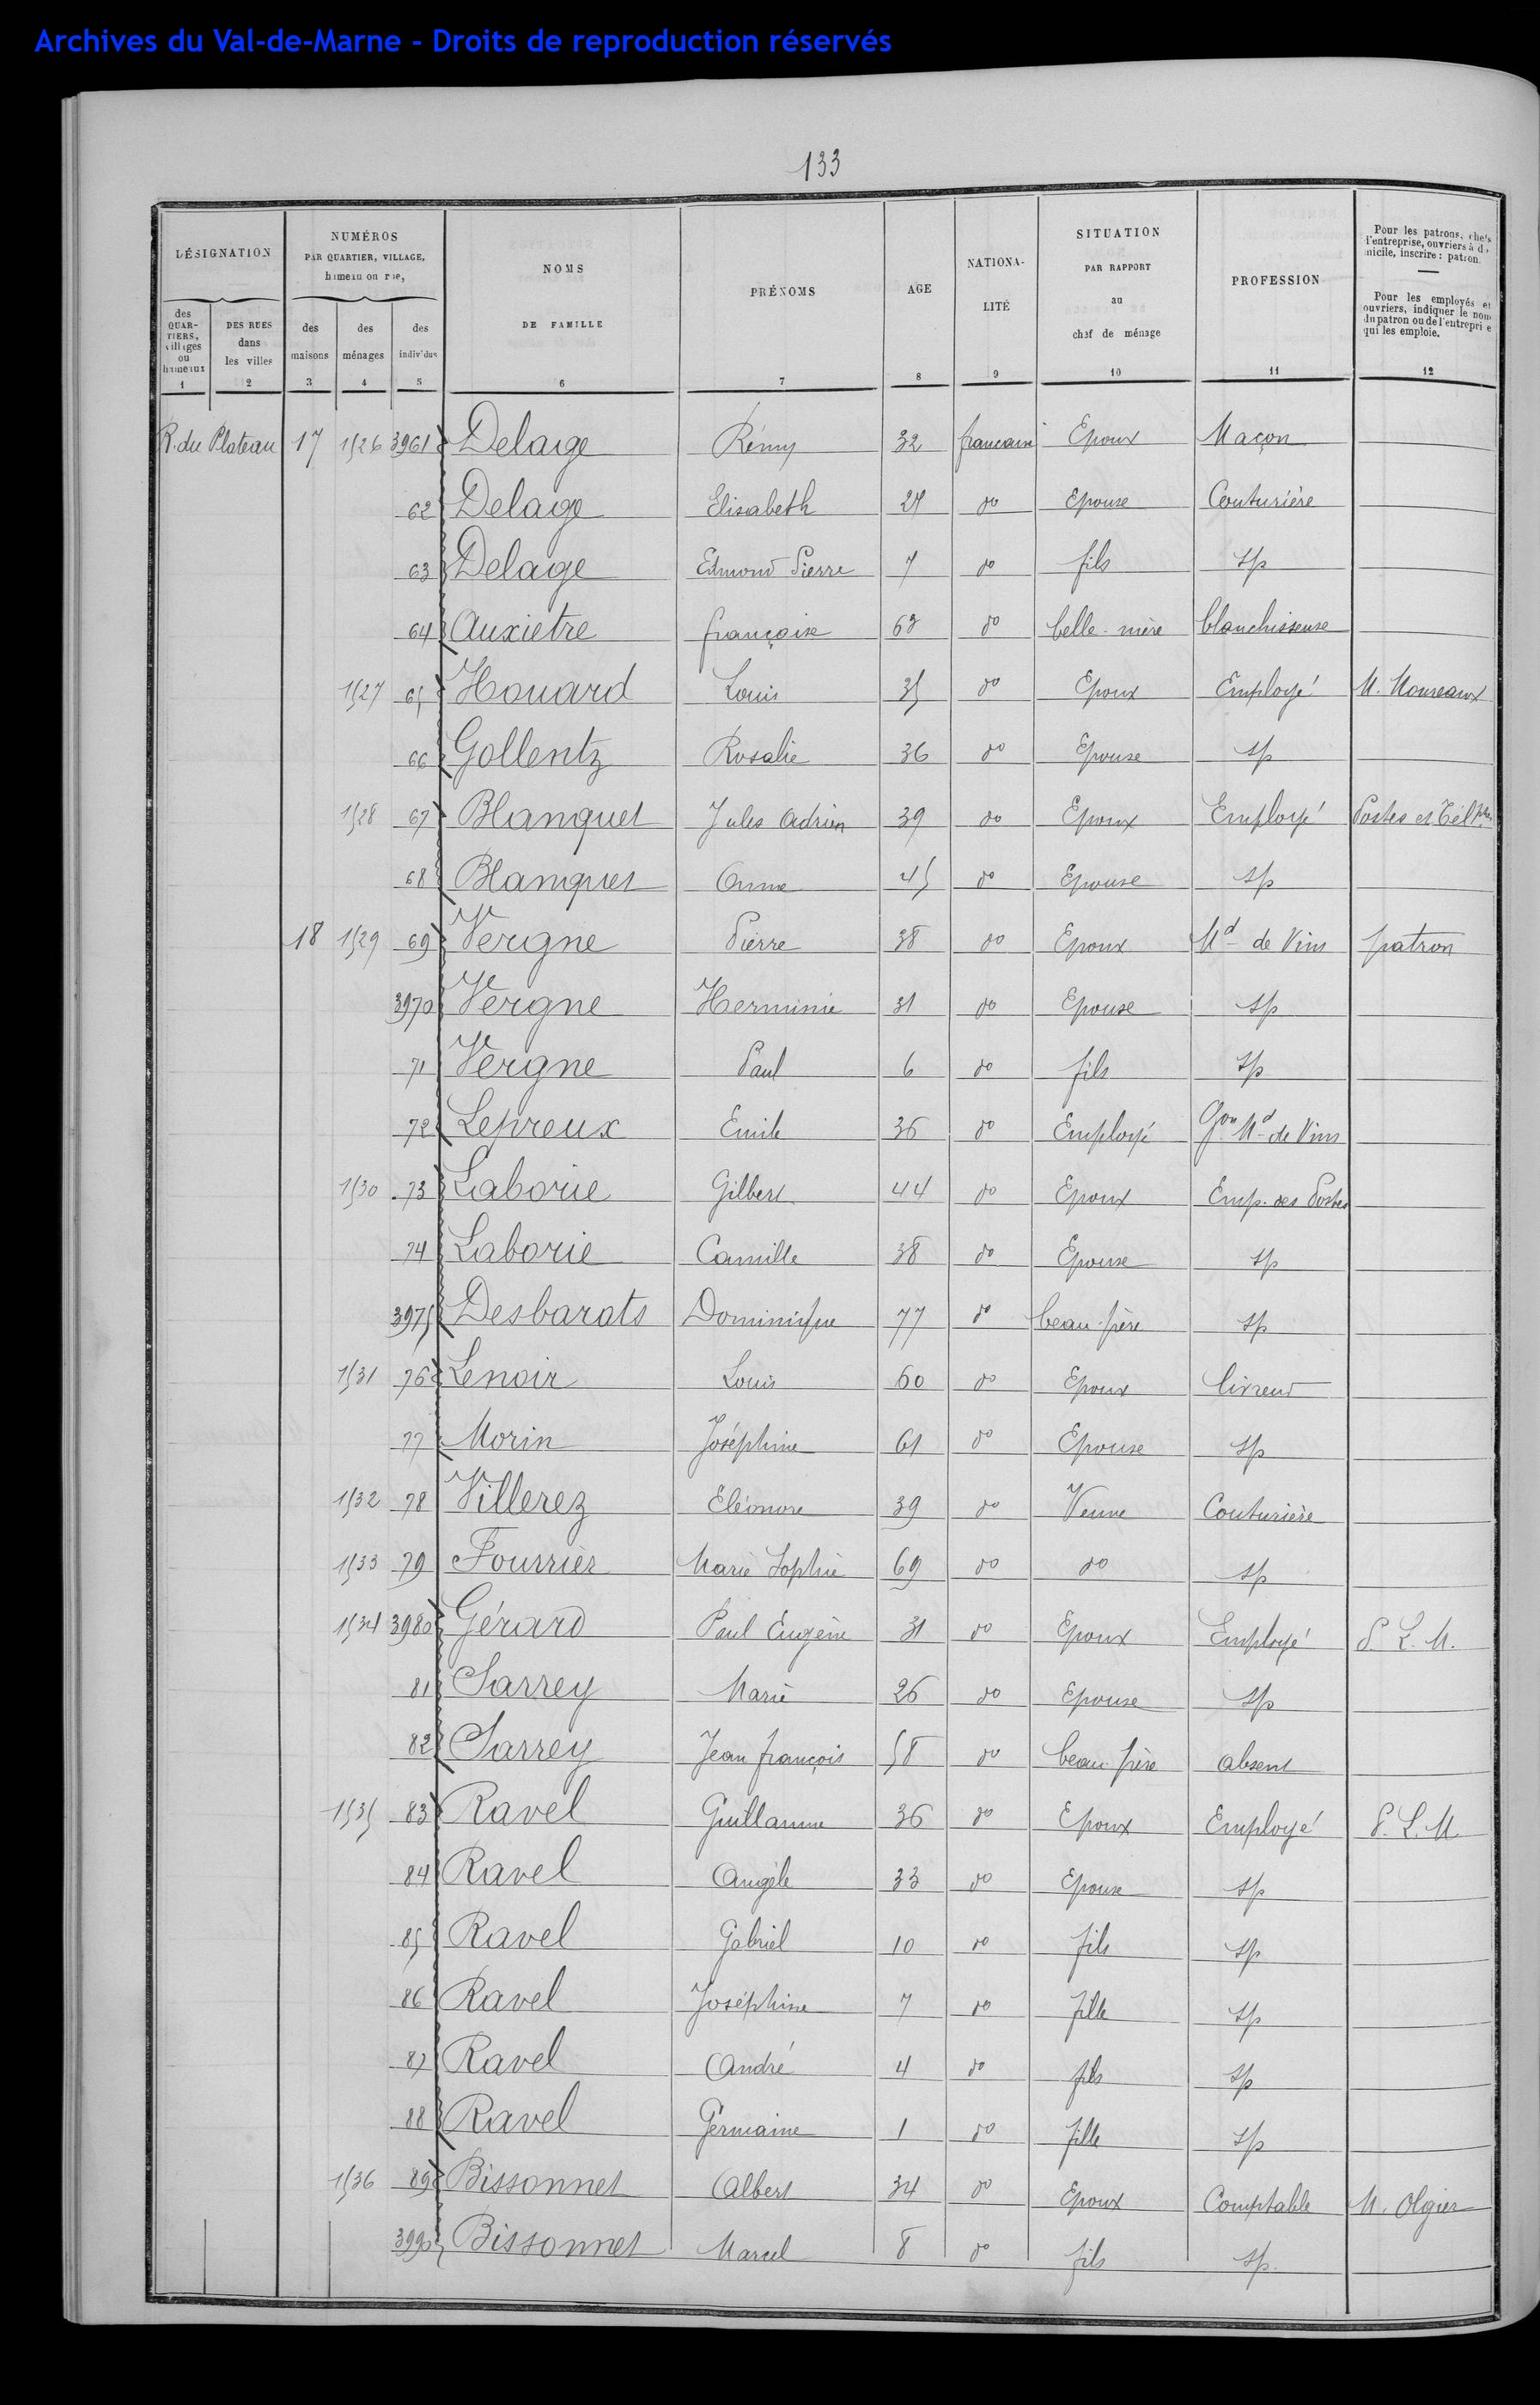 Archives du Val-de-Marne - Droits de reproduction réservés
133
DÉSIGNATION
des QUARTIERS, villages ou hameaux
1
DES RUES dans les villes
2
NUMÉROS
PAR QUARTIER, VILLAGE,
hameau ou rue,
des maisons
3
des ménages
4
des individus
5
NOMS
DE FAMILLE
6
PRÉNOMS
7
AGE
8
NATIONA-
LITÉ
9
SITUATION
PAR RAPPORT
au
chef de ménage
10
PROFESSION
11
Pour les patrons, chefs
l'entreprise, ouvriers à d
micile, inscrire : patron.
Pour les employés et
ouvriers, indiquer le nom
du patron ou de l'entreprise
qui les emploie.
12
R. du Plateau 17 1526 3961 Delage Rémy 32 francaise Epoux Maçon
62 Delage Elisabeth 27 do Epouse Couturière
63 Delage Edmond Pierre 7 do fils sp
64 Auxietre françoise 63 do belle-mère blanchisseuse
1527 65 Houard Louis 35 do Epoux Employé M. Mousseaux
66 Gollentz Rosalie 36 do Epouse sp
1528 67 Blanquet Jules Adrien 39 do Epoux Employé Postes et Tél
68 Blanquet Anna 45 do Epouse sp
18 1529 69 Vergne Pierre 38 do Epoux Md de Vins patron
3970 Vergne Herminie 31 do Epouse sp
71 Vergne Paul 6 do fils sp
72 Lepreux Emile 36 do Employé Gon Md de Vins
1530 73 Laborie Gilbert 44 do Epoux Emp. des Postes
74 Laborie Camille 38 do Epouse sp
3975 Desbarats Dominique 77 do beau-père sp
1531 76 Lenoir Louis 60 do Epoux livreur
77 Morin Joséphine 61 do Epouse sp
1532 78 Villerez Eléonore 39 do Veuve Couturière
1533 79 Fourrier Marie Sophie 69 do do sp
1534 3980 Gérard Paul Eugène 31 do Epoux Employé P. L. M.
81 Sarrey Marie 26 do Epouse sp
82 Sarrey Jean françois 58 do beau-père absent
1535 83 Ravel Guillaume 36 do Epoux Employé P. L. M
84 Ravel Angèle 33 do Epouse sp
85 Ravel Gabriel 10 do fils sp
86 Ravel Joséphine 7 do fille sp
87 Ravel André 4 do fils sp
88 Ravel Germaine 1 do fille sp
1536 89 Bissonnet Albert 34 do Epoux Comptable M. Olgier
3990 Bissonnet Marcel 8 do fils sp.